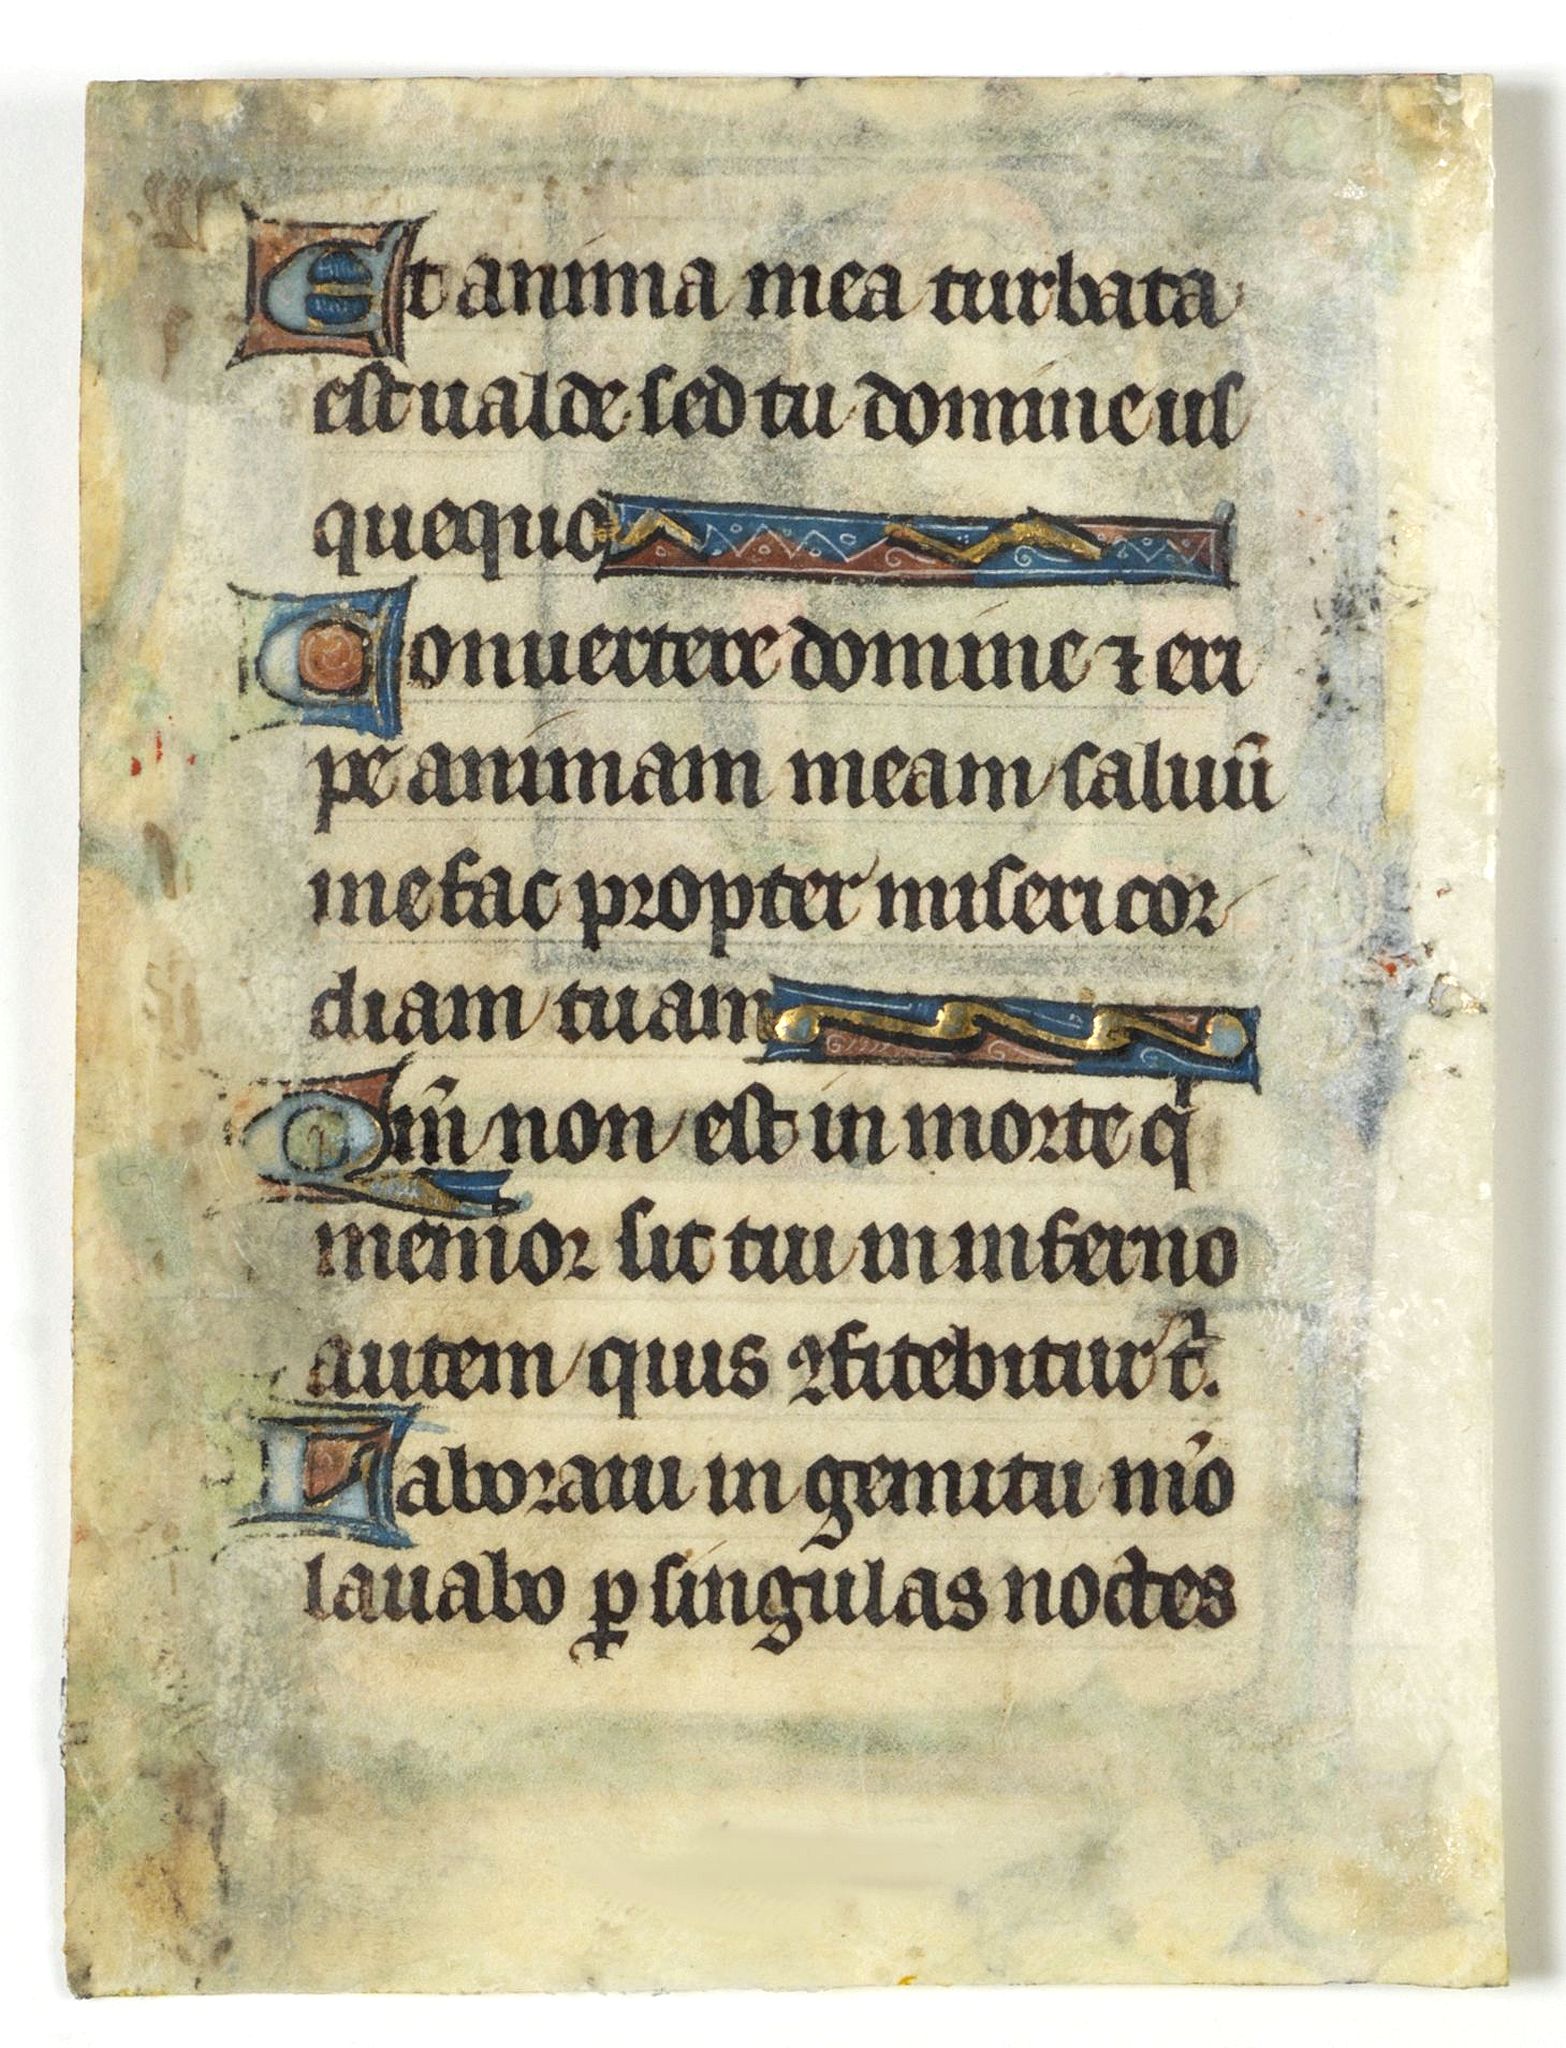 Et anima mea turbata
est ualde sed tu domine us
quequo
Conuertere domine ⁊ eri
pe animam meam saluū
me fac propter misericor
diam tuam
Qm̄ non est in morte qͥ
memor sit tui in inferno
autem quis ꝯfitebitur t̄.
Laboraui in gemitu mōo
lauabo ꝑ singulas noctes